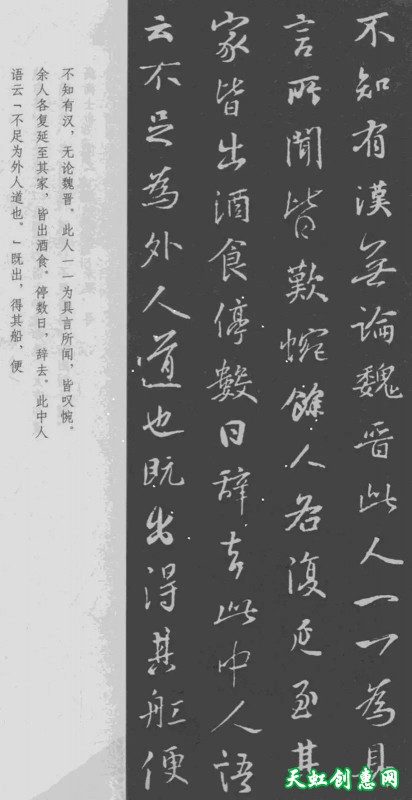 不知有漢無論魏晋此人一一為具
言所聞皆歎惋餘人各復延至其
家皆出酒食停數日辞去此中人語
云不足為外人道也既出得其船便
不知有汉，无论魏晋。此人一一为具言所闻，皆叹惋。
余人各复延至其家，皆出酒食。停数日，辞去。此中人
语云「不足为外人道也。」既出，得其船，便
天虹创意网